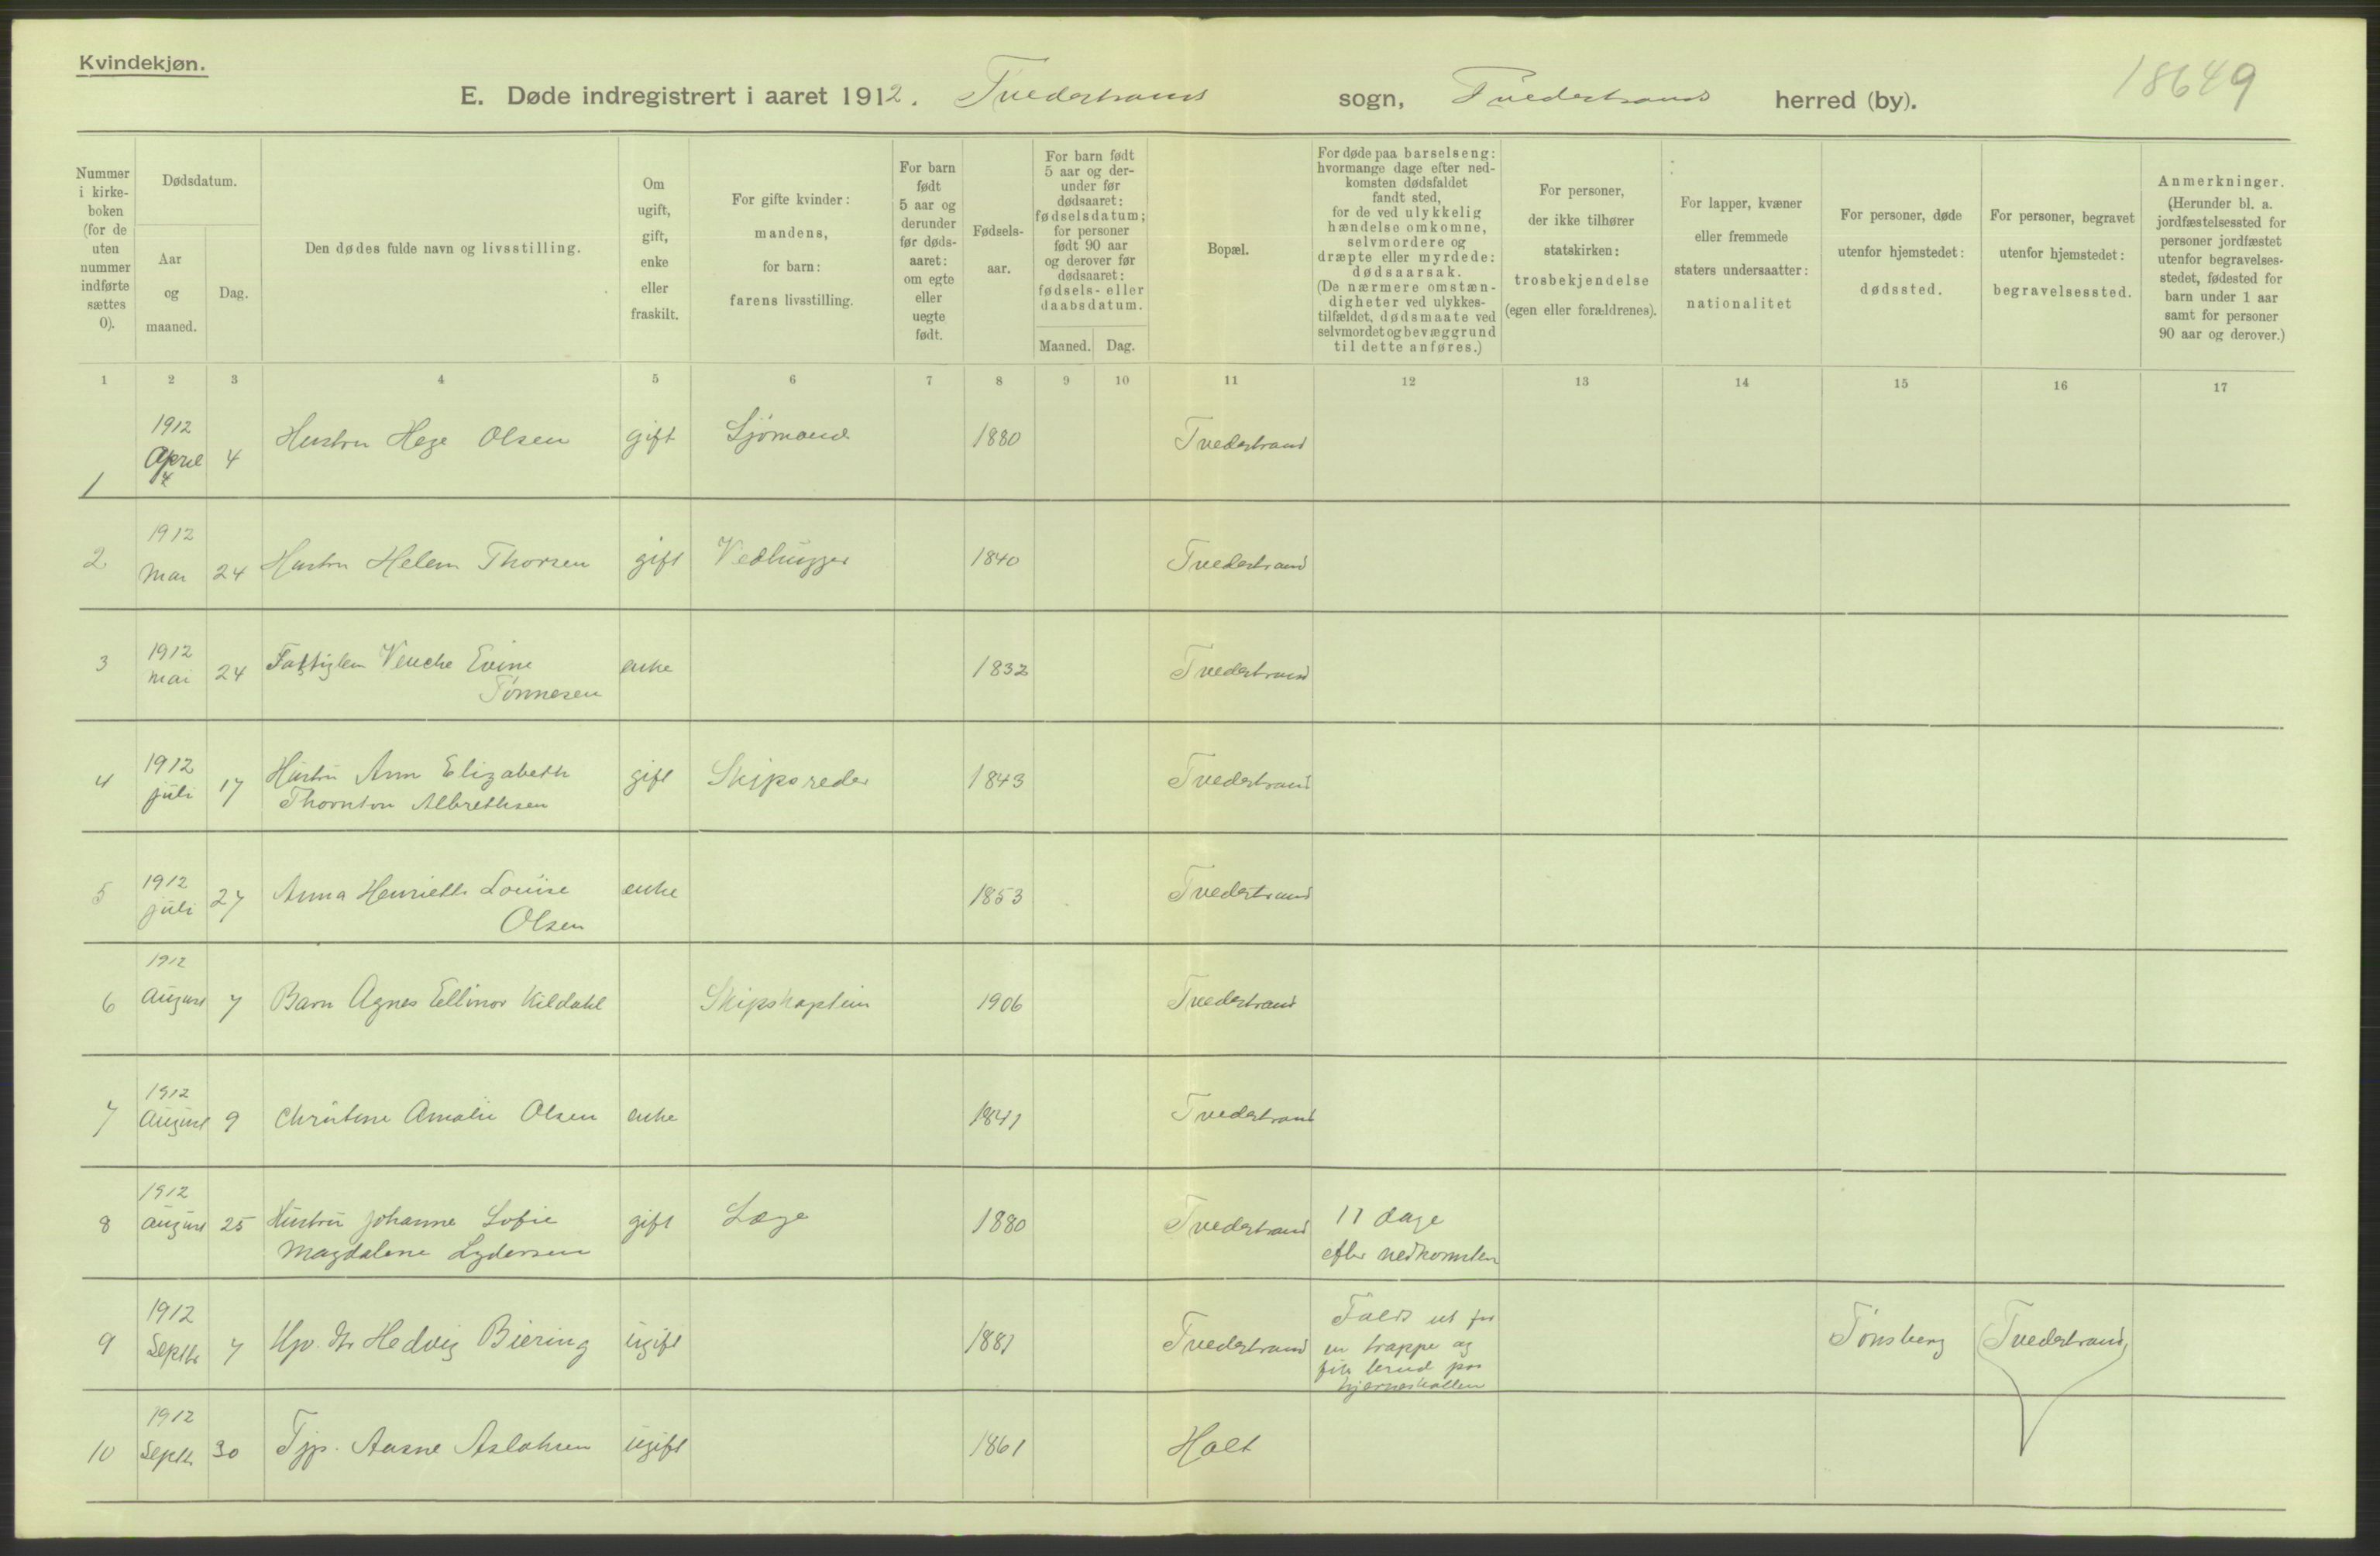 Kvindekjøn.
18649
E. Døde indregistrert i aaret 1912. Tvedestrand sogn, Tvedestrand herred (by).
Nummer
i kirke-
boken
(for de
uten
nummer
indførte
sættes
0).
Dødsdatum.
Aar
og
maaned.
Dag.
Den dødes fulde navn og livsstilling.
Om
ugift,
gift,
enke
eller
fraskilt.
For gifte kvinder:
mandens,
for barn:
farens livsstilling.
For barn
født
5 aar og
derunder
før døds-
aaret:
om egte
eller
uegte
født.
Fødsels-
aar.
For barn født
5 aar og der-
under før
dødsaaret:
fødselsdatum;
for personer
født 90 aar
og derover før
dødsaaret:
fødsels- eller
daabsdatum.
Maaned. Dag.
Bopæl.
For døde paa barselseng:
hvormange dage efter ned-
komsten dødsfaldet
fandt sted,
for de ved ulykkelig
hændelse omkomne,
selvmordere og
dræpte eller myrdede:
dødsaarsak.
(De nærmere omstæn-
digheter ved ulykkes-
tilfældet, dødsmaate ved
selvmordet og bevæggrund
til dette anføres.)
For personer,
der ikke tilhører
statskirken:
trosbekjendelse
(egen eller forældrenes).
For lapper, kvæner
eller fremmede
staters undersaatter:
nationalitet
For personer, døde
utenfor hjemstedet:
dødssted.
For personer, begravet
utenfor hjemstedet:
begravelsessted.
Anmerkninger.
(Herunder bl. a.
jordfæstelsessted for
personer jordfæstet
utenfor begravelses-
stedet, fødested for
barn under 1 aar
samt for personer
90 aar og derover.)
1 2 3 4 5 6 7 8 9 10 11 12 13 14 15 16 17
1912
1 April 4 Hustru Hege Olsen gift Sjømand 1880 Tvedestrand
4
1912
2 Mai 24 Hustru Helene Thorsen gift Vedhugger 1840 Tvedestrand
1912
3 mai 24 Fattiglem Venche Evine enke 1832 Tvedestrand
Tønnesen
1912
4 juli 17 Hustru Ann Elizabeth gift Skipsreder 1843 Tvedestrand
Thornton Albrethsen
1912
5 juli 27 Anna Henriette Louise enke 1853 Tvedestrand
Olsen
1912
6 August 7 Barn Agnes Ellinor Kildahl Skipskaptein 1906 Tvedestrand
1912
7 August 9 Christine Amalie Olsen enke 1841 Tvedestrand
1912
8 August 25 Hustru Johanne Sofie gift Læge 1880 Tvedestrand 11 dage
Magdalene Lydersen efter nedkomsten
1912
9 Septbr 7 Hedvig Biering ugift 1881 Tvedestrand Faldt ut for Tønsberg Tvedestrand
en trappe og
fik brud paa
hjerneskallen
1912
10 Septbr 30 Tjp. Aasne Aslaksen ugift 1861 Holt